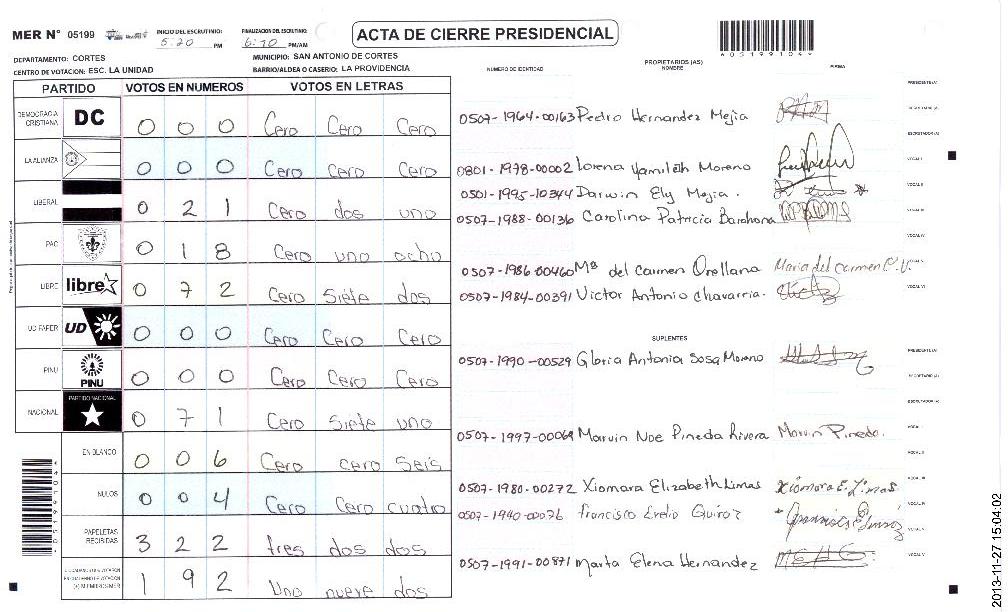 MER N° 05199
INICIO DEL ESCRUTINIO: 5:20 PM
FINALIZACIÓN DEL ESCRUTINIO: 6:10 PM/AM
ACTA DE CIERRE PRESIDENCIAL
A05199104
DEPARTAMENTO: CORTES
MUNICIPIO: SAN ANTONIO DE CORTES
CENTRO DE VOTACION: ESC. LA UNIDAD
BARRIO/ALDEA O CASERIO: LA PROVIDENCIA
PARTIDO VOTOS EN NUMEROS VOTOS EN LETRAS
DEMOCRACIA CRISTIANA DC 0 0 0 Cero Cero Cero
LA ALIANZA 0 0 0 Cero Cero Cero
LIBERAL 0 2 1 Cero dos uno
PAC 0 1 8 Cero uno ocho
LIBRE libre 0 7 2 Cero Siete dos
UD FAPER UD 0 0 0 Cero Cero Cero
PINU PINU 0 0 0 Cero Cero Cero
NACIONAL PARTIDO NACIONAL 0 7 1 Cero Siete uno
EN BLANCO 0 0 6 Cero cero Seis
NULOS 0 0 4 Cero Cero cuatro
PAPELETAS RECIBIDAS 3 2 2 tres dos dos
1 9 2 Uno nueve dos
NUMERO DE IDENTIDAD PROPIETARIOS (AS) NOMBRE FIRMA
PRESIDENTE (A)
SECRETARIO (A)
0507-1964-00163 Pedro Hernandez Mejia
ESCRUTADOR (A)
VOCAL I
0801-1978-00002 Lorena Yamileth Moreno
VOCAL II
0501-1995-10344 Darwin Ely Mejia.
VOCAL III
0507-1988-00136 Carolina Patricia Barahona
VOCAL IV
VOCAL V
0507-1986-00460 Mª del Carmen Orellana Maria del Carmen
VOCAL VI
0507-1984-00391 Victor Antonio Chavarria.
SUPLENTES
PRESIDENTE (A)
0507-1990-00529 Gloria Antonia Sosa Moreno
SECRETARIO (A)
ESCRUTADOR (A)
VOCAL I
0507-1997-00064 Marvin Noe Pineda Rivera Marvin Pineda.
VOCAL II
VOCAL III
0507-1980-00272 Xiomara Elizabeth Limas Xiomara E. Limas
VOCAL IV
0507-1940-00076 francisco Evelio Quiroz
VOCAL V
VOCAL VI
0507-1991-00871 Marta Elena Hernandez
2013-11-27 15:04:02